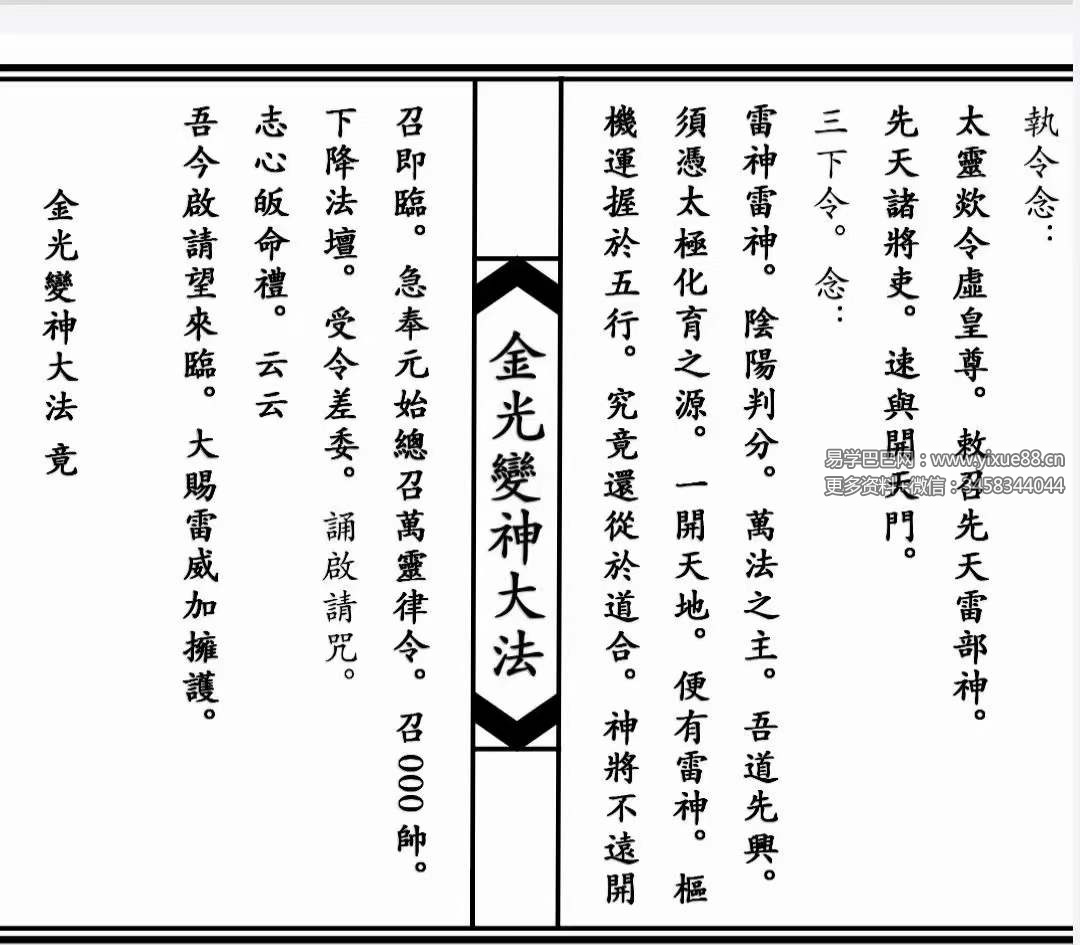 執令念：
太靈欻令虛皇尊。敕召先天雷部神。
先天諸將吏。速與開天門。
三下令。念：
雷神雷神。陰陽判分。萬法之主。吾道先興。
須憑太極化育之源。一開天地。便有雷神。樞
機運握於五行。究竟還從於道合。神將不遠開
金光變神大法
召即臨。急奉元始總召萬靈律令。召000帥。
下降法壇。受令差委。誦啟請咒。
志心皈命禮。云云
吾今啟請望來臨。大賜雷威加擁護。
金光變神大法 竟
易学巴巴网：www.yixue88.cn
更多资料+微信：3458344044